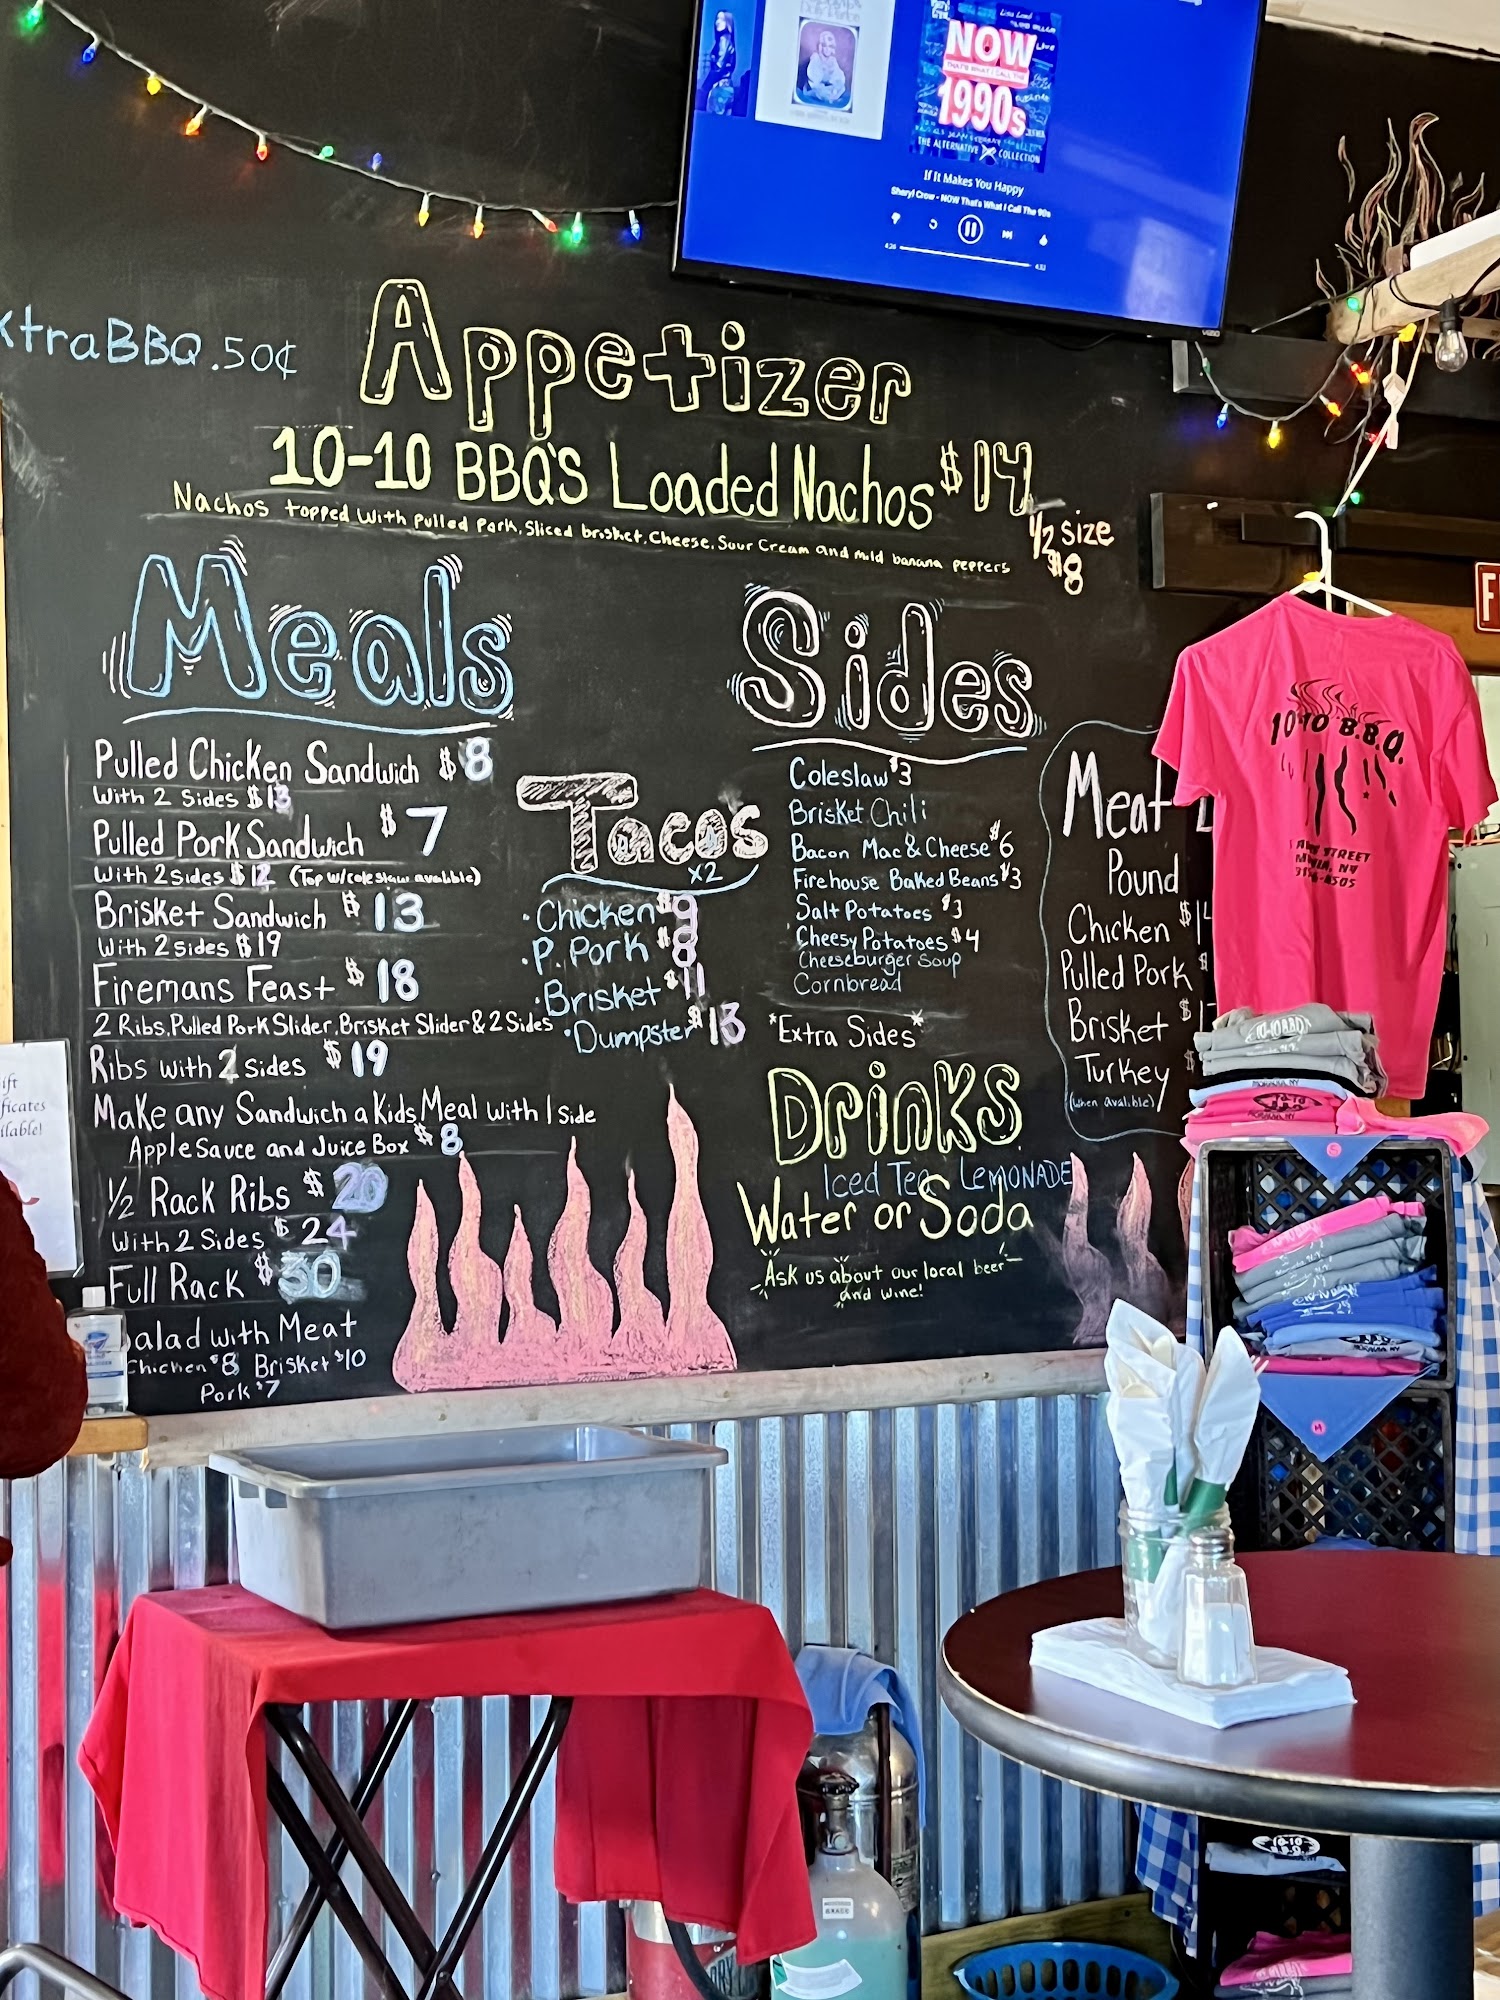 NOW
THAT'S WHAT I CALL THE
1990s
THE ALTERNATIVE COLLECTION
If It Makes You Happy
Sheryl Crow - NOW That's What I Call The 90s
4:26
4:32
VIZIO
xtra BBQ .50¢
Appetizer
10-10 BBQ'S Loaded Nachos $14
Nachos topped with pulled Pork, Sliced brisket, Cheese, Sour Cream and mild banana peppers
1/2 size
$8
Meals
Pulled Chicken Sandwich $8
With 2 Sides $13
Pulled Pork Sandwich $7
With 2 Sides $12 (Top w/cole slaw avalible)
Brisket Sandwich $13
With 2 Sides $19
Firemans Feast $18
2 Ribs, Pulled Pork Slider, Brisket Slider & 2 Sides
Ribs with 2 sides $19
Make any Sandwich a Kids Meal with 1 side
Apple Sauce and Juice Box $8
1/2 Rack Ribs $20
With 2 Sides $24
Full Rack $30
Salad with Meat
Chicken $8 Brisket $10
Pork $7
Tacos
x2
• Chicken $9
• P. Pork $8
• Brisket $11
• Dumpster $13
Sides
Coleslaw $3
Brisket Chili
Bacon Mac & Cheese $6
Firehouse Baked Beans $3
Salt Potatoes $3
Cheesy Potatoes $4
Cheeseburger Soup
Cornbread
*Extra Sides*
Drinks
Iced Tea LEMONADE
Water or Soda
Ask us about our local beer
and wine!
Meat
Pound
Chicken $1
Pulled Pork $
Brisket $1
Turkey $
(when avalible)
10-10 B.B.Q.
STREET
, NY
ift
ficates
ilable!
F
10-10 BBQ
MORAVIA, NY